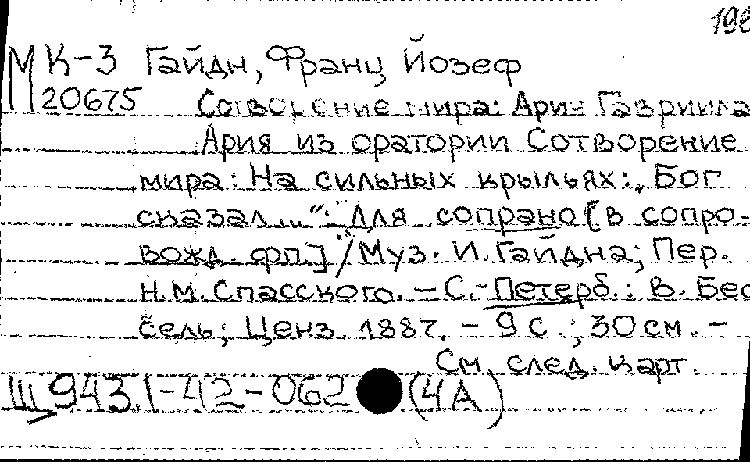 198
М К-3 Гайдн, Франц Йозеф
20675 Сотворение мира: Ария Гавриила
Ария из оратории Сотворение
мира: На сильных крыльях: „Бог
сказал..." : Для сопрано [в сопро-
вожд. фп.] / Муз. И. Гайдна; Пер.
Н.М. Спасского. – С.-Петерб.: В. Бес
сель; Ценз. 1887. – 9 с.; 30 см. –
См. след. карт.
III 943.1-42-062 (4А)